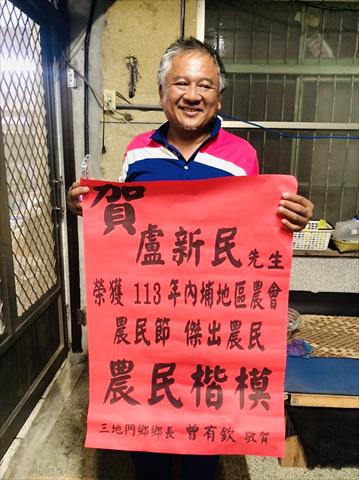 賀
盧新民先生
榮獲 113年內埔地區農會
農民節 傑出農民
農民楷模
三地門鄉鄉長 曾有欽 敬賀